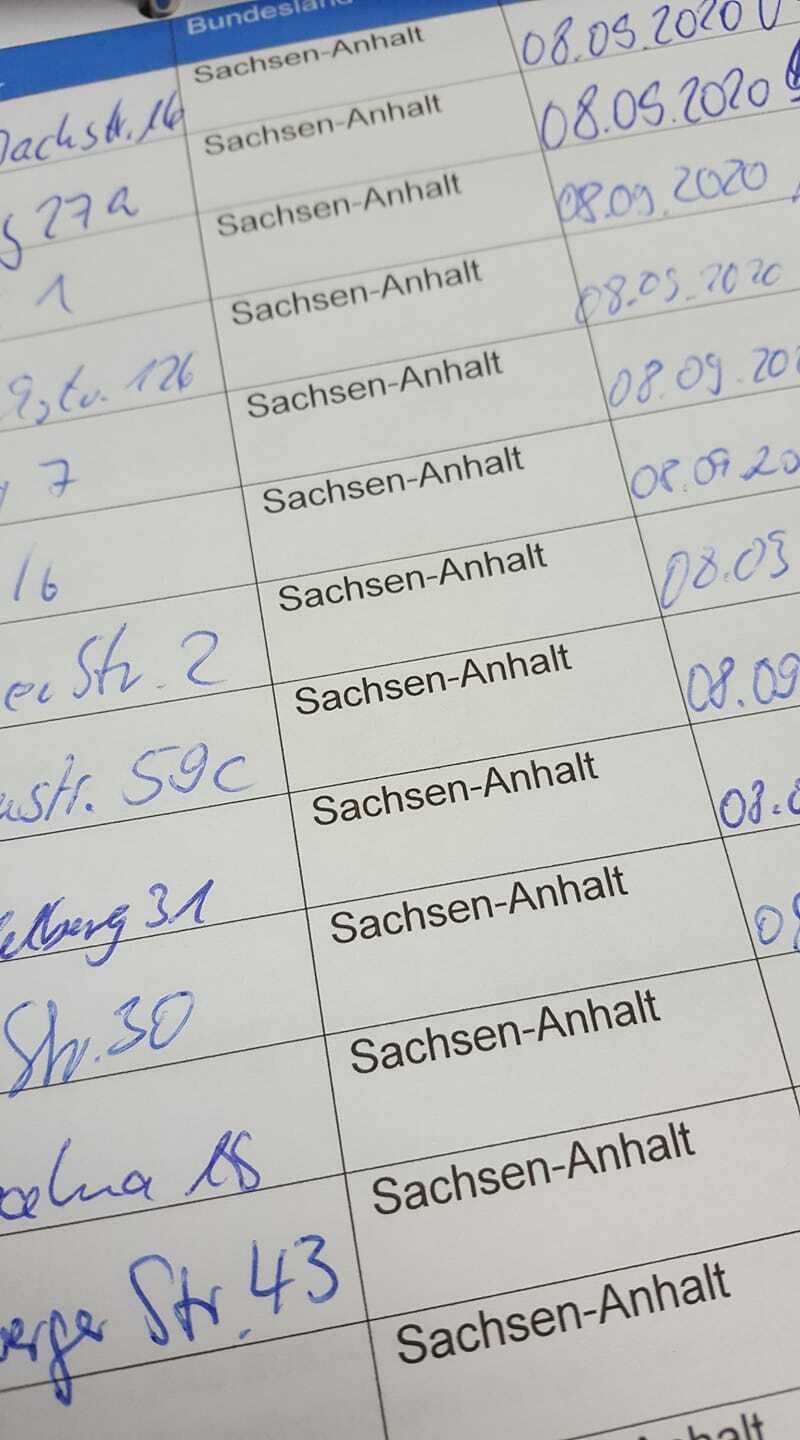 Bundesland
Sachsen-Anhalt 08.09.2020
Dachstr. 16 Sachsen-Anhalt 08.09.2020
27a Sachsen-Anhalt 08.09.2020
1 Sachsen-Anhalt 08.09.2020
126 Sachsen-Anhalt 08.09.20
7 Sachsen-Anhalt 08.09.20
16 Sachsen-Anhalt 08.09
Str. 2 Sachsen-Anhalt 08.09
str. 59c Sachsen-Anhalt 08.
elberg 31 Sachsen-Anhalt 08
Str. 30 Sachsen-Anhalt
18 Sachsen-Anhalt
erger Str. 43 Sachsen-Anhalt
halt